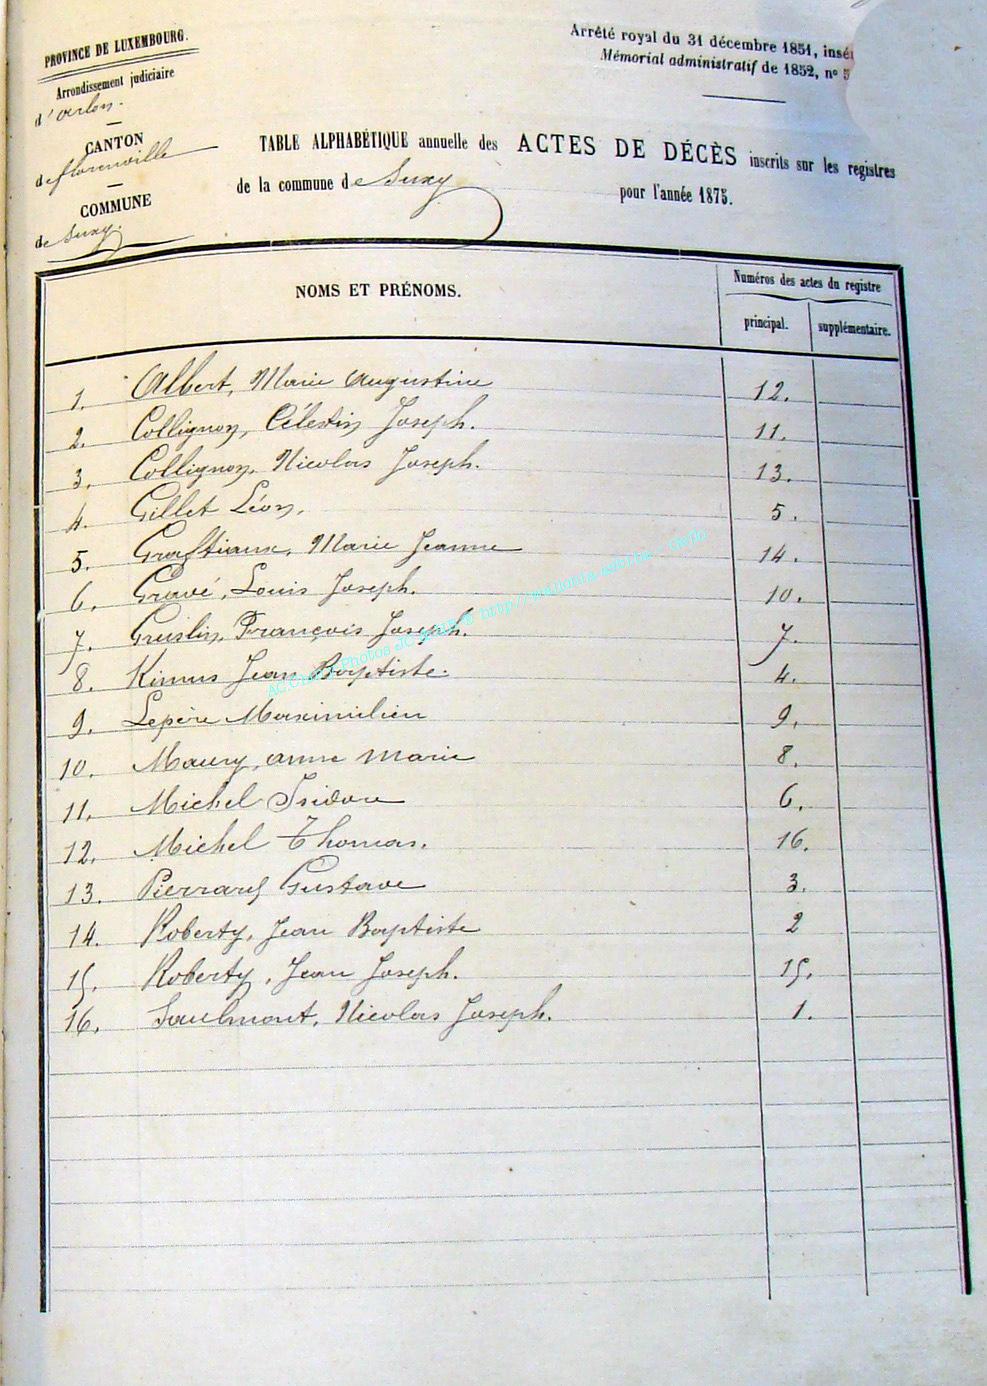 PROVINCE DE LUXEMBOURG.
Arrondissement judiciaire
d'Arlon.
CANTON
de florenville
COMMUNE
de Suxy.
Arrêté royal du 31 décembre 1851, insé
Mémorial administratif de 1852, nº 5
TABLE ALPHABÉTIQUE annuelle des ACTES DE DÉCÈS inscrits sur les registres
de la commune de Suxy pour l'année 1875.
NOMS ET PRÉNOMS.
Numéros des actes du registre
principal. supplémentaire.
1. Albert, Marie Augustine 12.
2. Collignon, Célestin Joseph. 11.
3. Collignon, Nicolas Joseph. 13.
4. Gillet Léon, 5.
5. Graftiaux, Marie Jeanne 14.
6. Gravé, Louis Joseph. 10.
7. Gruslin, François Joseph. 7.
8. Kimus Jean Baptiste. 4.
9. Lepère Maximilien 9.
10. Maury, anne marie 8.
11. Michel Isidore 6.
12. Michel Thomas. 16.
13. Pierrard Gustave 3.
14. Roberty, Jean Baptiste 2
15. Roberty, Jean Joseph. 15.
16. Saulmont, Nicolas Joseph. 1.